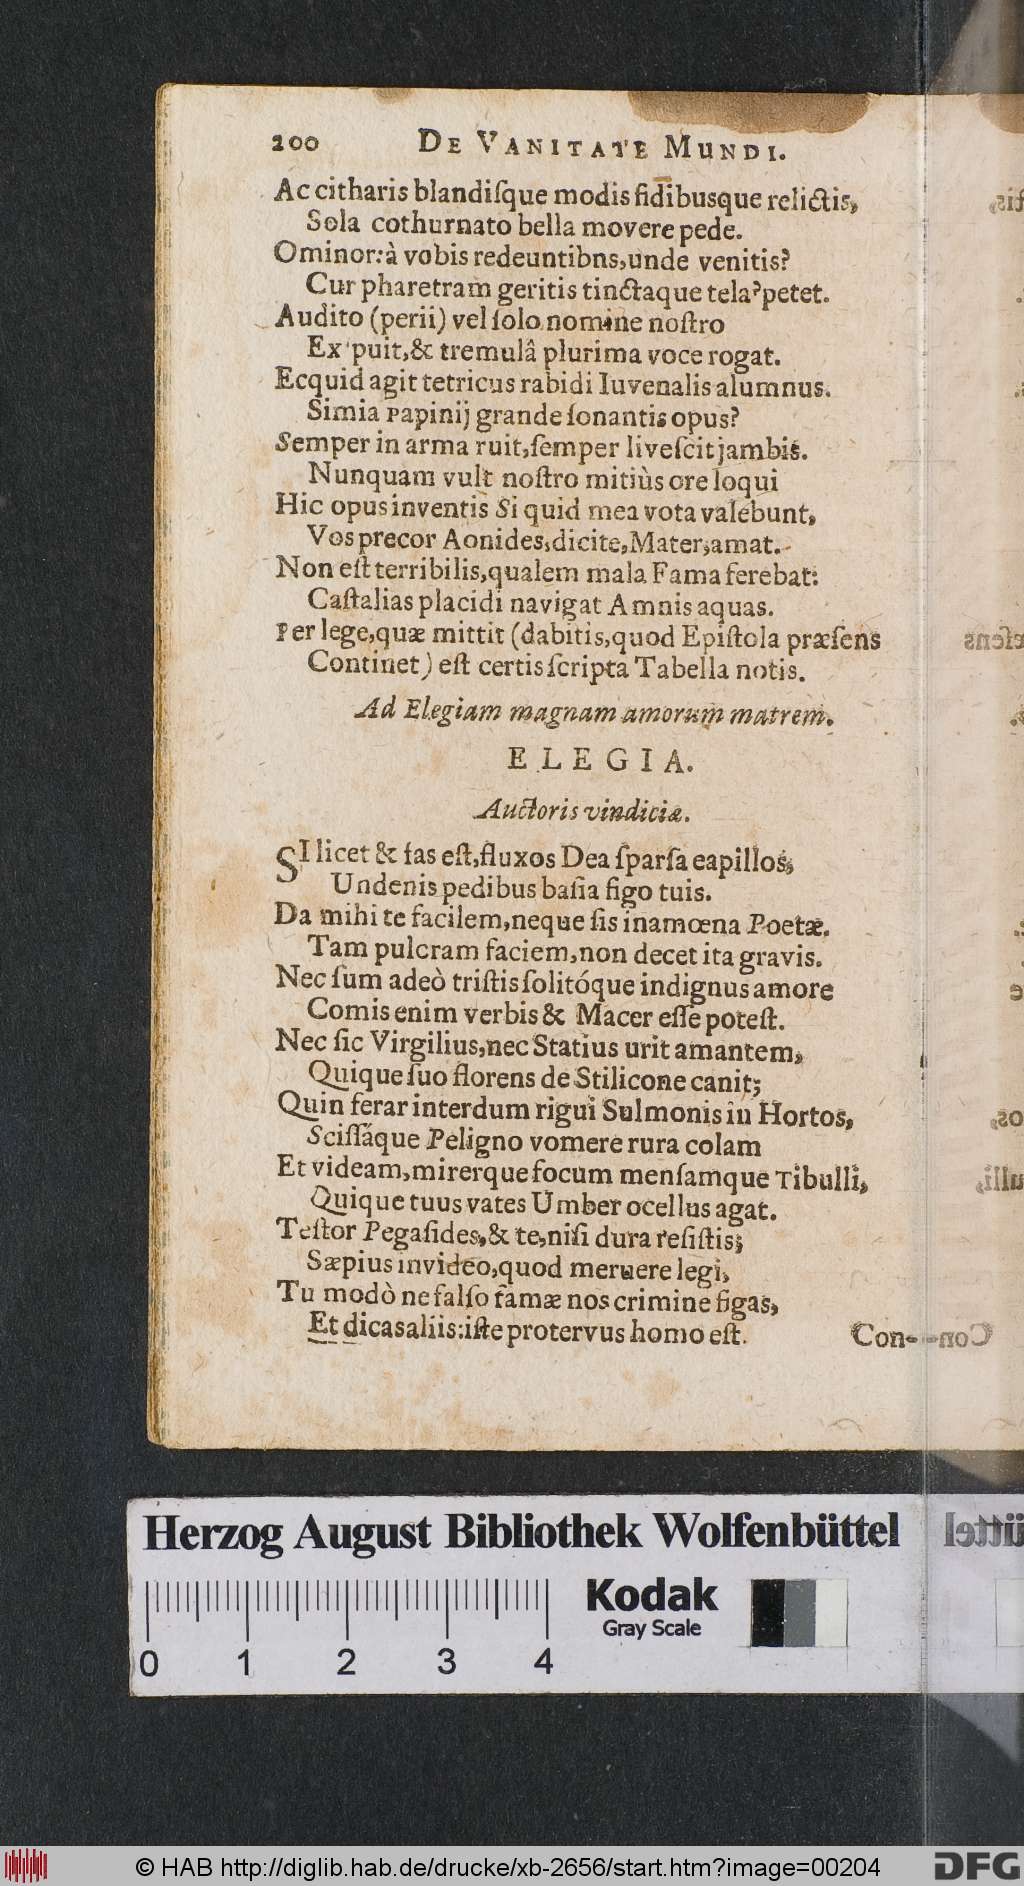 200 DE VANITATE MUNDI.
Ac citharis blandiſque modis fidibusque relictis,
Sola cothurnato bella movere pede.
Ominor: à vobis redeuntibns, unde venitis?
Cur pharetram geritis tinctaque tela? petet.
Audito (perii) vel ſolo nomine noſtro
Ex puit, & tremulâ plurima voce rogat.
Ecquid agit tetricus rabidi Iuvenalis alumnus.
Simia Papinij grande ſonantis opus?
Semper in arma ruit, ſemper liveſcit jambis.
Nunquam vult noſtro mitiùs ore loqui
Hic opus inventis Si quid mea vota valebunt,
Vos precor Aonides, dicite, Mater, amat.
Non eſt terribilis, qualem mala Fama ferebat:
Caſtalias placidi navigat Amnis aquas.
Per lege, quæ mittit (dabitis, quod Epiſtola præſens
Continet) eſt certis ſcripta Tabella notis.
Ad Elegiam magnam amorum matrem.
ELEGIA.
Auctoris vindiciæ.
SI licet & fas eſt, fluxos Dea ſparſa eapillos,
Undenis pedibus baſia figo tuis.
Da mihi te facilem, neque ſis inamœna Poetæ.
Tam pulcram faciem, non decet ita gravis.
Nec ſum adeò triſtis ſolitóque indignus amore
Comis enim verbis & Macer eſſe poteſt.
Nec ſic Virgilius, nec Statius urit amantem,
Quique ſuo florens de Stilicone canit;
Quin ferar interdum rigui Sulmonis in Hortos,
Sciſſáque Peligno vomere rura colam
Et videam, mirerque focum menſamque Tibulli,
Quique tuus vates Umber ocellus agat.
Teſtor Pegaſides, & te, niſi dura reſiſtis;
Sæpius invideo, quod meruere legi,
Tu modò ne falſo famæ nos crimine figas,
Et dicas aliis: iſte protervus homo eſt.
Con-
Herzog August Bibliothek Wolfenbüttel
Kodak
Gray Scale
0 1 2 3 4
© HAB http://diglib.hab.de/drucke/xb-2656/start.htm?image=00204
DFG